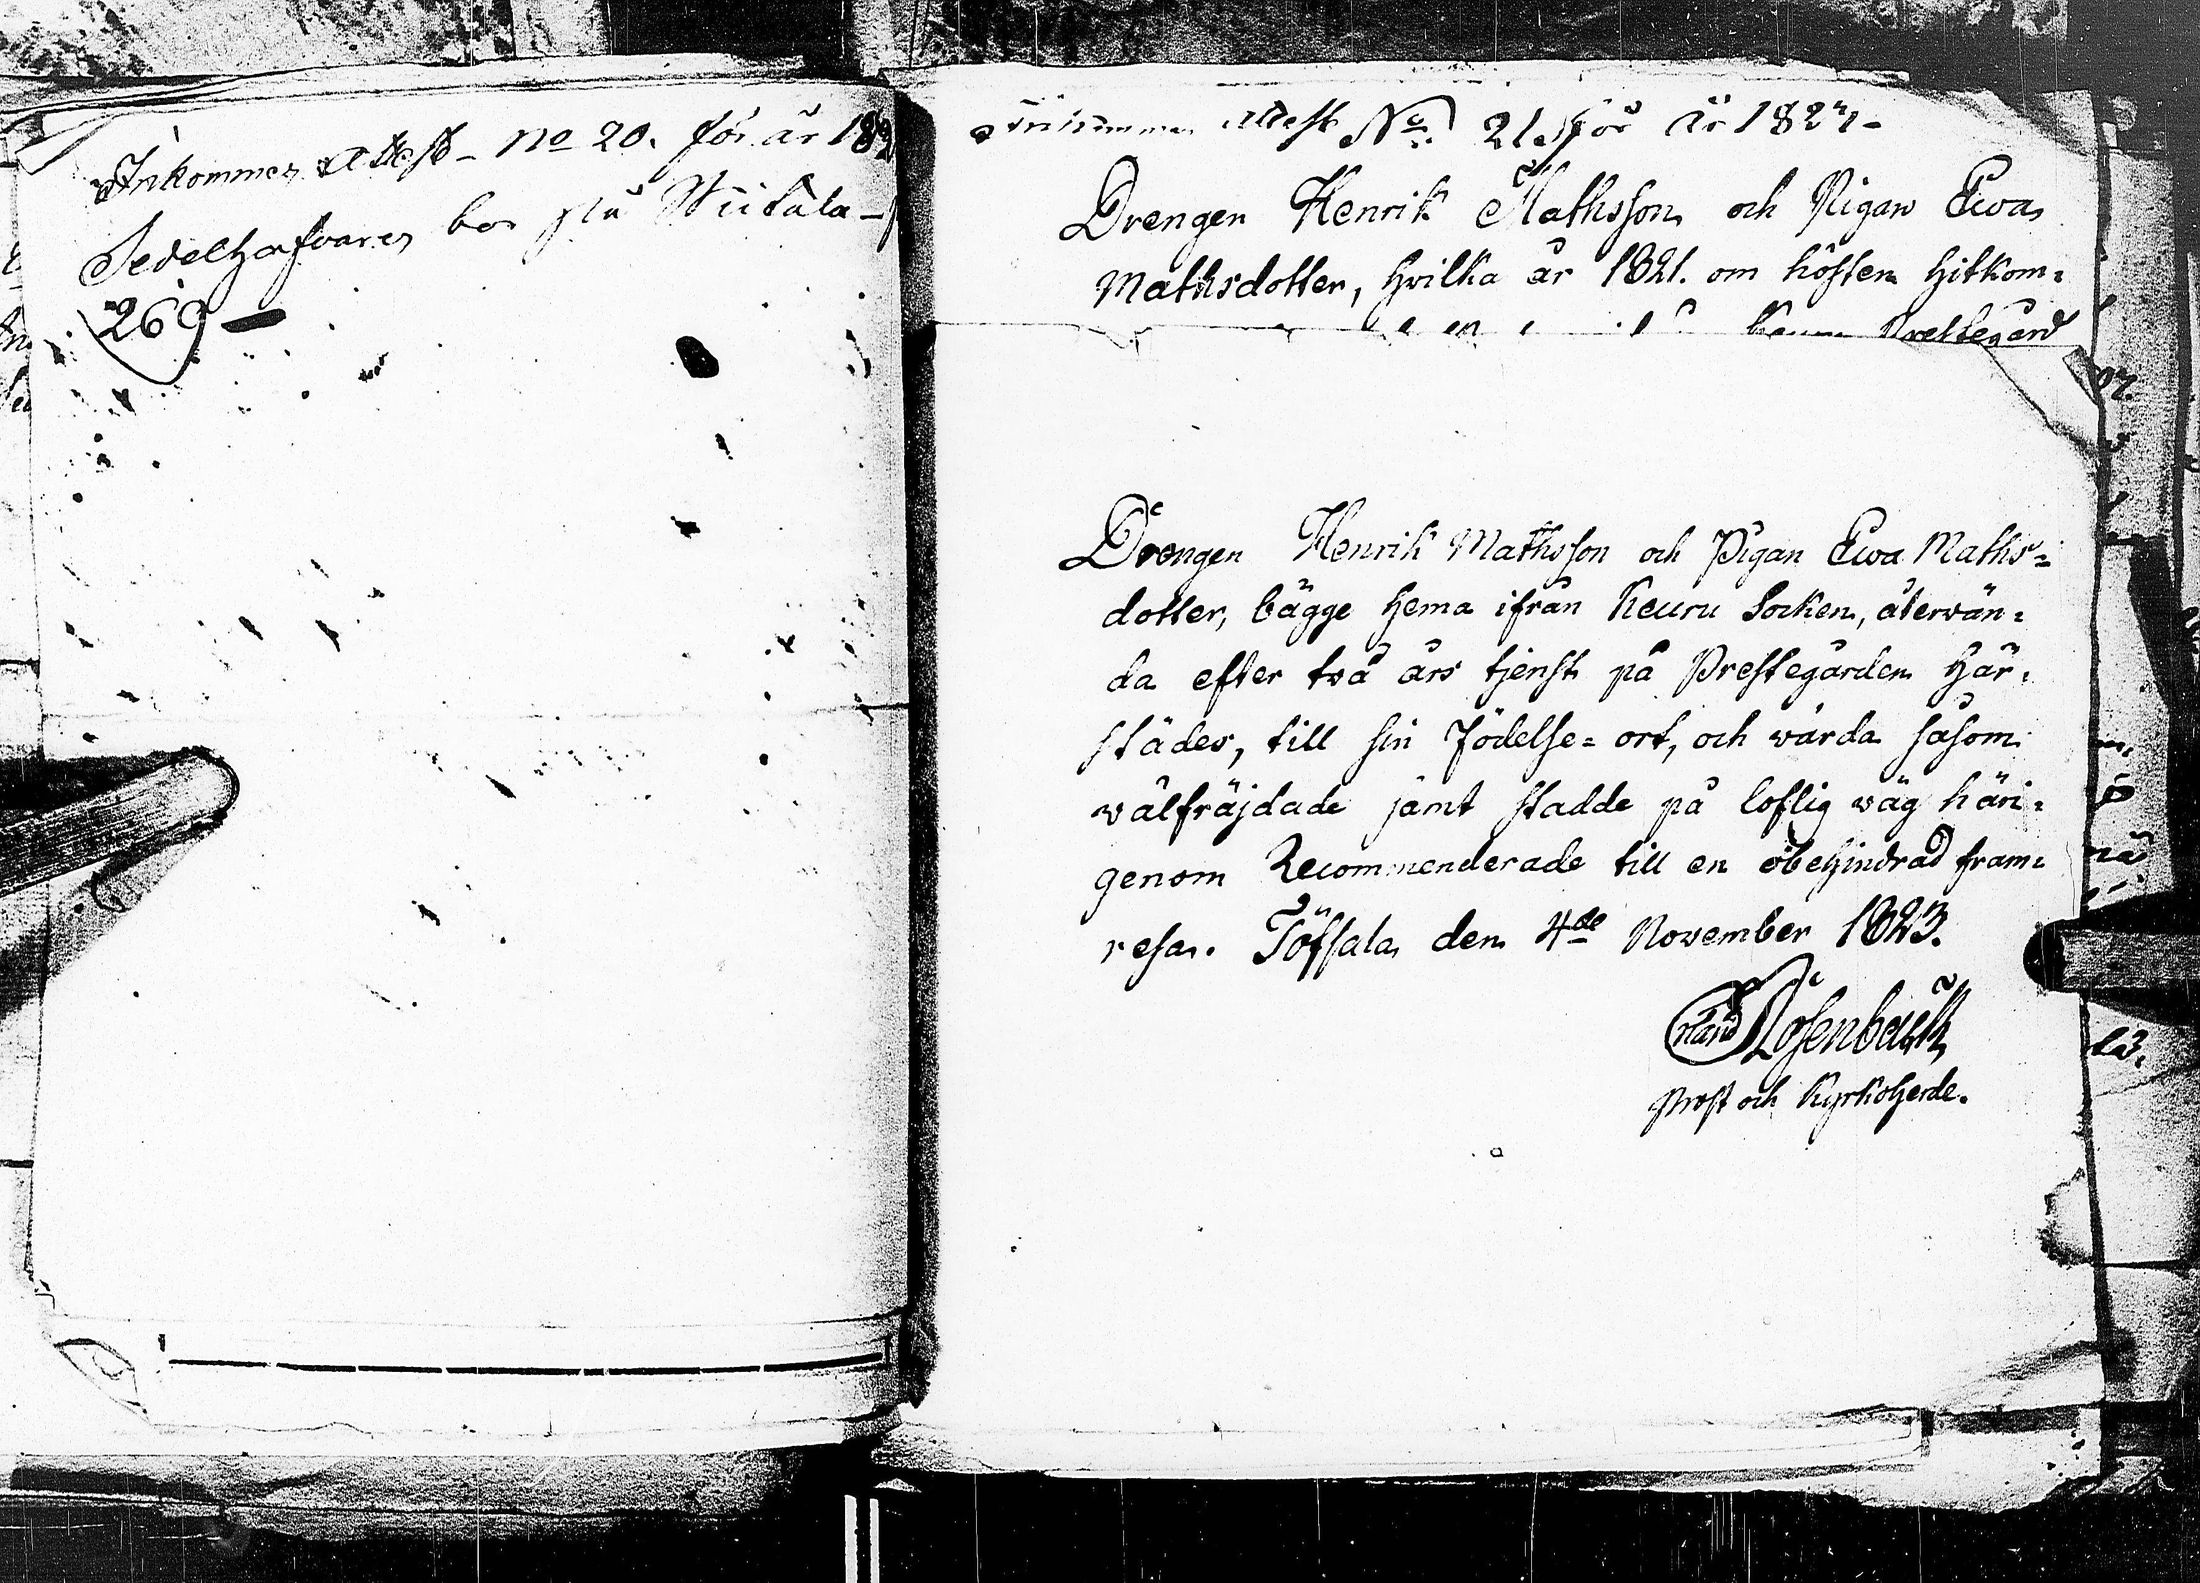 Inkommen Attest - No 20. för år 182
Sedelhafvaren bor på Wiitala -
269 -
Inkommen Attest No. 21. för år 1824 -
Drengen Henrik Mathsson och Pigan Ewa
Mathsdotter, hvilka år 1821. om hösten hitkom=
Prestegård
Drengen Henrik Mathsson och Pigan Ewa Maths=
dotter, bägge hema ifrån Keuru Socken, återwän=
da efter två års tjenst på Prestegården här=
städes, till sin Födelse=ort, och warda såsom
wälfräjdade samt stadde på loflig wäg häri=
genom Recommenderade till en obehindrad fram=
resa. Töfsala den 4de November 1823.
Rosenback
Prost och Kyrkoherde.